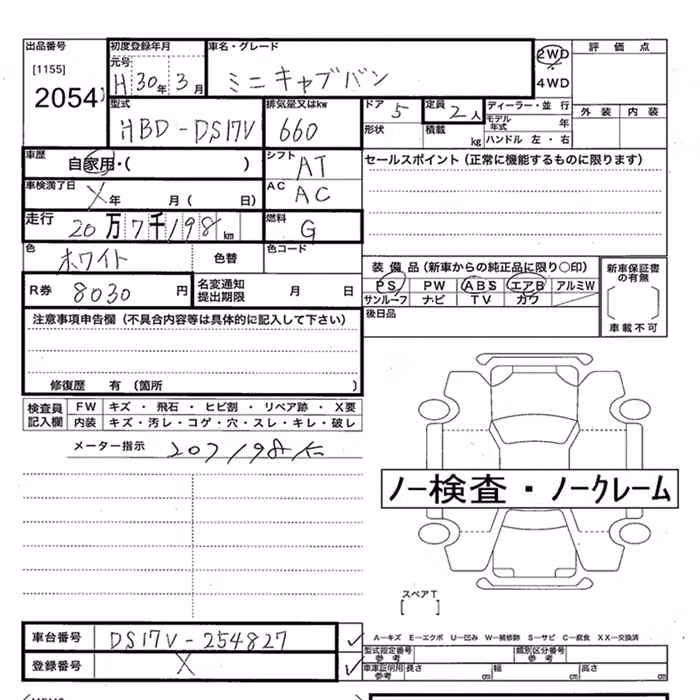 出品番号 初度登録年月 車名・グレード 2WD 評価点
[1155] 元号 4WD
2054 H30年3月 ミニキャブバン 外装 内装
型式 排気量又はkw ドア 5 定員 2人 ディーラー・並行
HBD-DS17V 660 形状 積載 kg モデル年式 年
ハンドル 左・右
車歴 自家用・( ) シフト AT セールスポイント(正常に機能するものに限ります)
車検満了日 X年 月( 日) AC AC
走行 20万7千198km 燃料 G
色 ホワイト 色替 色コード
装備品(新車からの純正品に限り〇印) 新車保証書の有無
R券 8030円 名変通知提出期限 月 日 PS PW ABS エアB アルミW
サンルーフ ナビ TV カワ
後日品 車載不可
注意事項申告欄(不具合内容等は具体的に記入して下さい)
修復歴 有(箇所 )
検査員記入欄 FW キズ・飛石・ヒビ割・リペア跡・X要
内装 キズ・汚レ・コゲ・穴・スレ・キレ・破レ
メーター指示 207198km
ノー検査・ノークレーム
スペアT
[ ]
車台番号 DS17V-254827 A-キズ E-エクボ U-凹み W-補修跡 S-サビ C-腐食 XX-交換済
型式指定番号参考 類別区分番号参考
登録番号 X 車庫証明用参考 長さ cm 幅 cm 高さ cm